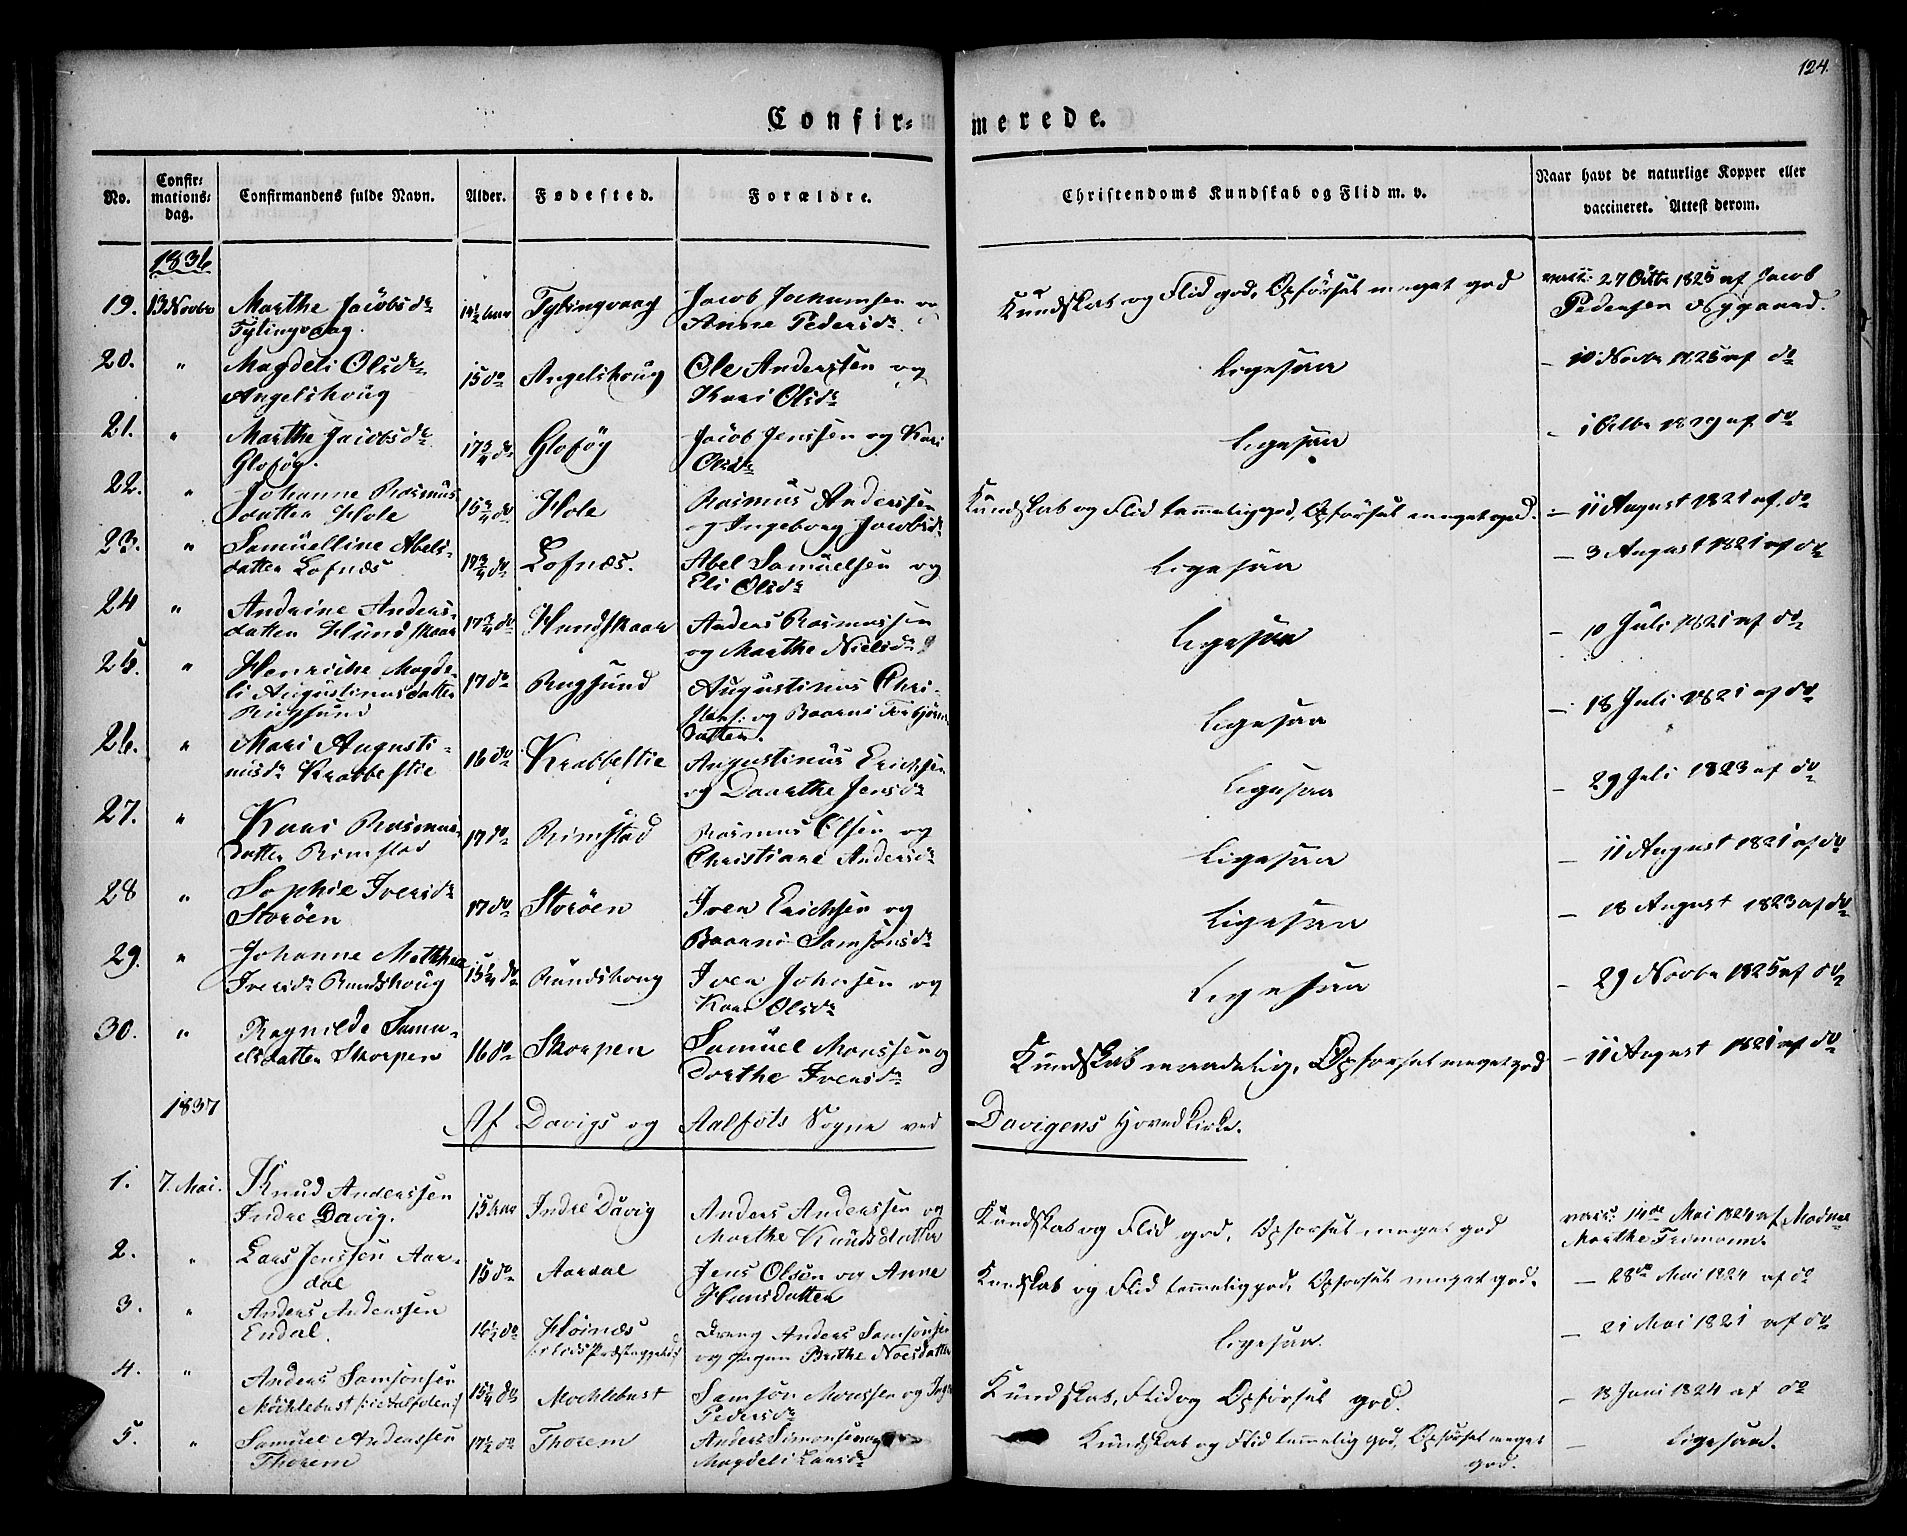 124.
Confir= merede.
No. Confirmations-dag. Confirmandens fulde Navn. Alder. Fødested. Forældre. Christendoms Kundskab og Flid m. v. Naar havt de naturlige Kopper eller vaccineret. Attest derom.
1836
19. 13 Novbr Marthe Jacobsdr 14½ Aar Tytingvaag Jacob Jochumsen og Kundskab og Flid god, Opførsel meget god vacc: 27 Octbr 1825 af Jacob
Tytingvaag. Anne Pedersdr. Pedersen Nygaard.
20. " Magdeli Olsdr 15 do Angelshoug Ole Anderssen og Ligesaa — 10 Novbr 1825 af do
Angelshoug Kari Olsdr
21. " Marthe Jacobsdr 17¾ do Gloføg Jacob Jenssen og Kari Ligesaa — 1819 af do
Gloføg. Olsdr
22. " Johanne Rasmus 15¾ do Hole Rasmus Anderssen Kundskab og Flid temmelig god, Opførsel meget god. — 11 August 1821 af do
datter Hole og Ingeborg Jacobsdr
23. " Samuelline Abels- 17¾ do Lofnæs. Abel Samuelsen og Ligesaa — 3 August 1821 af do
datter Lofnæs Eli Olsdr
24 " Andrine Anders- 17¾ do Hundskaar Anders Rasmussen Ligesaa — 10 Juli 1821 af do
datter Hundskaar og Marthe Nielsdr
25. " Henriche Magde- 17 do Rugsund Augustinus Chri- Ligesaa — 18 Juli 1821 af do
li Augustinusdatter stens: og Baarni Torbjørns
Rugsund datter.
26. " Mari Augusti- 16 do Krabbestie Augustinus Erichsen Ligesaa — 29 Juli 1823 af do
nusdr Krabbestie og Daarthe Jensdr
27. " Kari Rasmus- 17 do Rimstad Rasmus Olsen og Ligesaa — 11 August 1821 af do
datter Rimstad Christiane Andersdr
28 " Sophie Iversdr 17 do Storøen Iver Erichsen og Ligesaa — 18 August 1823 af do
Storøen Baarni Samsonsdr
29. " Johanne Matthea 15¼ do Rundshoug Iver Johnsen og Ligesaa — 29 Novbr 1825 af do
Iversdr Rundshoug Kari Olsdr
30. " Ragnilde Samu- 16 do Skorpen Samuel Monssen og Kundskab maadelig, Opførsel meget god — 11 August 1821 af do
elsdatter Skorpen Dorthe Iversdr
1837 Af Davigs og Aalfots Sogne ved Davigens Hovedkirke.
1. 7. Mai. Knud Anderssen 15 Aar Indre Davig Anders Anderssen og Kundskab og Flid god, Opførsel meget god vacc: 14de Mai 1824 af Madme
Indre Davig. Marthe Knudsdatter Marthe Frimann
2. " Lars Jenssen Aar- 15 do Aardal Jens Olsen og Anne Kundskab og Flid temmelig god, Opførsel meget god. — 28de Mai 1824 af do
dal Hansdatter
3. " Anders Anderssen 16½ do Høinæs Dreng Anders Samsonsen Ligesaa. — 21 Mai 1821 af do
Endal. og Brithe Noesdatter
4. " Anders Samsonsen 15¼ do Mochlebust Samson Monssen og Kundskab, Flid og Opførsel god. — 13 Juni 1824 af do
Møchlebust Pedersdr
5. " Samuel Anderssen 17½ do Thorem Anders Simonsen og Kundskab og Flid temmelig god, Opførsel meget — Ligesaa.
Thorem Magdeli Larsdr god.